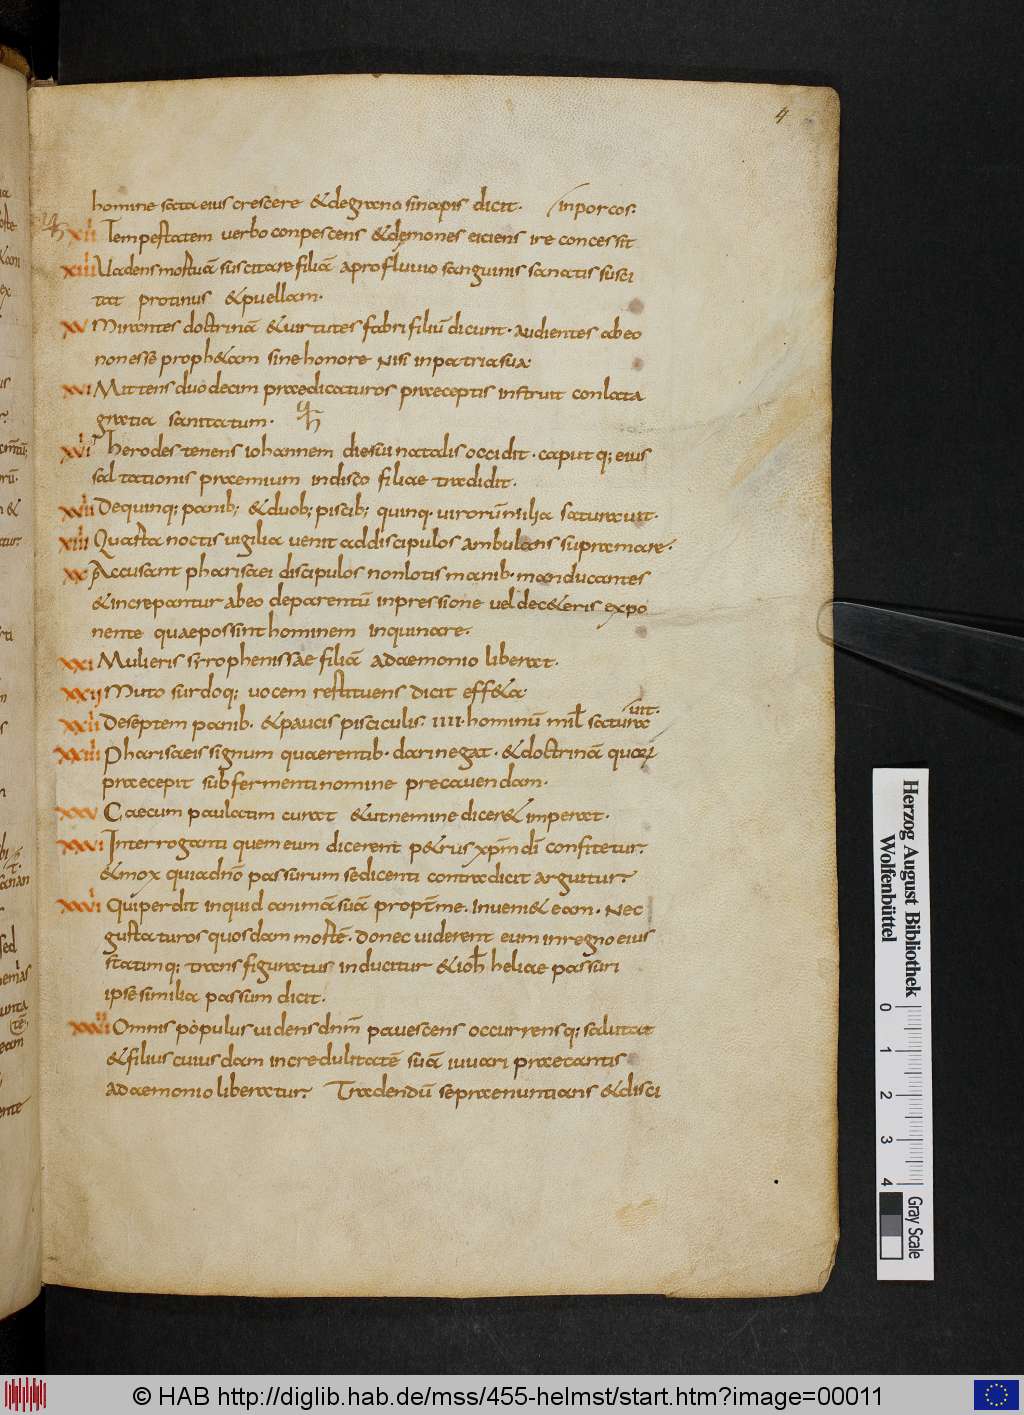 4
homine sata eius crescere & de grano sinapis dicit. in porcos.
xiii Tempestatem verbo conpescens & demones eiciens ire concessit
xiiii Uadens mortuā suscitare filiā a profluuio sanguinis sanatis susci
tat protinus & puellam.
xv Mirantes doctrinā & uirtutes fabri filiū dicunt. audientes ab eo
non esse proph&am sine honore nisi in patria sua.
xvi Mittens duodecim praedicaturos praeceptis instruit conlata
gratia sanitatum.
xvii herodes tenens iohannem die sui natalis occidit. caput q; eius
saltationis praemium in disco filiae tradidit.
xviii De quinq; panib; & duob; piscib; quinq. virorū milia saturauit.
xviiii Quarta noctis uigilia uenit ad discipulos ambulans supra mare.
xx Accusant pharisaei discipulos non lotis manib. manducantes
& increpantur ab eo de parentū inpressione vel de c&eris expo
nente quae possint hominem inquinare.
xxi Mulieris syrophenissae filiā a daemonio liberat.
xxii Muto surdoq; uocem restituens dicit eff&a.
xxiii De septem panib. & paucis pisciculis. IIII. hominū mil saturauit.
xxiiii Pharisaeis signum quaerentib. dari negat. & doctrinā quoq;
praecepit sub fermenti nomine precauendam.
xxv Caecum paulatim curat & ut nemine dicer& imperat.
xxvi Interroganti quem eum dicerent p&rus xp̄m dī confitetur.
& mox quia dn̄o passurum se dicenti contradicit arguitur.
xxvii Qui perdit inquid animā suā propt̄ me. inueni& eam. Nec
gustaturos quosdam mortē. donec uiderent eum in regno eius
statimq; transfiguratus inducitur & ioh̄ heliae passuri
ipse similia passum dicit.
xxviii Omnis populus uidens dn̄m pauescens occurrensq; salutat
& filius cuiusdam incredulitatē suā iuuari praecantis
a daemonio liberatur. Tradendū se praenuntians & disci
Herzog August Bibliothek
Wolfenbüttel
0 1 2 3 4
Gray Scale
© HAB http://diglib.hab.de/mss/455-helmst/start.htm?image=00011